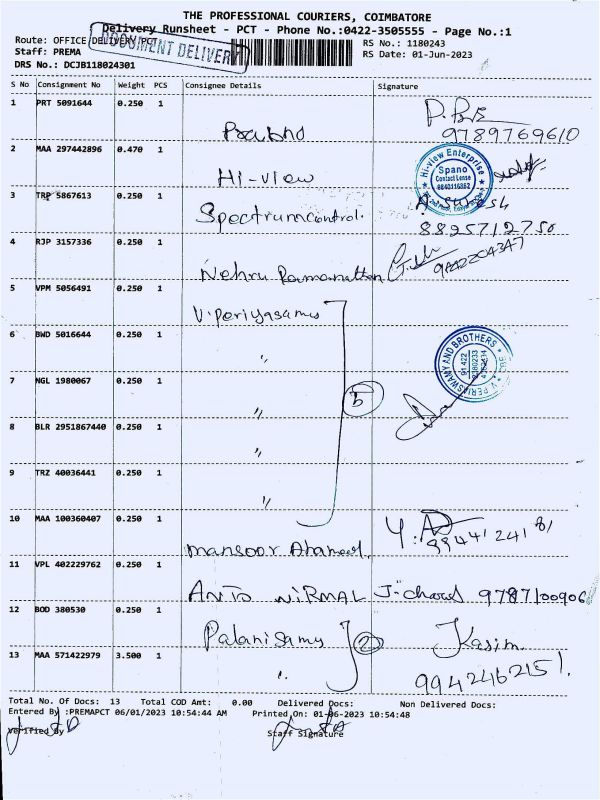 THE PROFESSIONAL COURIERS, COIMBATORE
Delivery Runsheet - PCT - Phone No.:0422-3505555 - Page No.:1
Route: OFFICE DELIVERY PCT
DOCUMENT DELIVERY
RS No.: 1180243
Staff: PREMA
RS Date: 01-Jun-2023
DRS No.: DCJB118024301
S No Consignment No Weight PCS Consignee Details Signature
1 PRT 5091644 0.250 1
Prabhu
9789769610
2 MAA 297442896 0.470 1
Hi-view
Hi-view Enterprise
Spano
Contact Lense
3 TRP 5867613 0.250 1
Spectrum control.
A. Suresh
8895712750
4 RJP 3157336 0.250 1
Nehru Ramanathan
9442204347
5 VPM 5056491 0.250 1
V. Periyasamy
6 BWD 5016644 0.250 1
"
V. PERIASWAMY AND BROTHERS
7 NGL 1980067 0.250 1
"
5
8 BLR 2951867440 0.250 1
"
9 TRZ 40036441 0.250 1
"
10 MAA 100360407 0.250 1
Mansoor Ahamed.
99441 241 81
11 VPL 402229762 0.250 1
ANTO NIRMAL
9787100906
12 BOD 380530 0.250 1
Palanisamy
2
Kasim.
13 MAA 571422979 3.500 1
"
9942462151.
Total No. Of Docs: 13 Total COD Amt: 0.00 Delivered Docs: Non Delivered Docs:
Entered By :PREMAPCT 06/01/2023 10:54:44 AM Printed On: 01-06-2023 10:54:48
Verified By Staff Signature